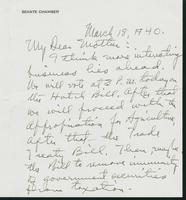 SENATE CHAMBER
March 18, 1940.
My Dear Mother:
I think more interesting
business lies ahead.
We will vote at 3 P.M. today on
the Hatch Bill. After that
we will proceed with the
Appropriation for Agriculture
After that the Trade
Treaty Bill. Then maybe
the Bill to remove immunity
to government securities
from taxation.